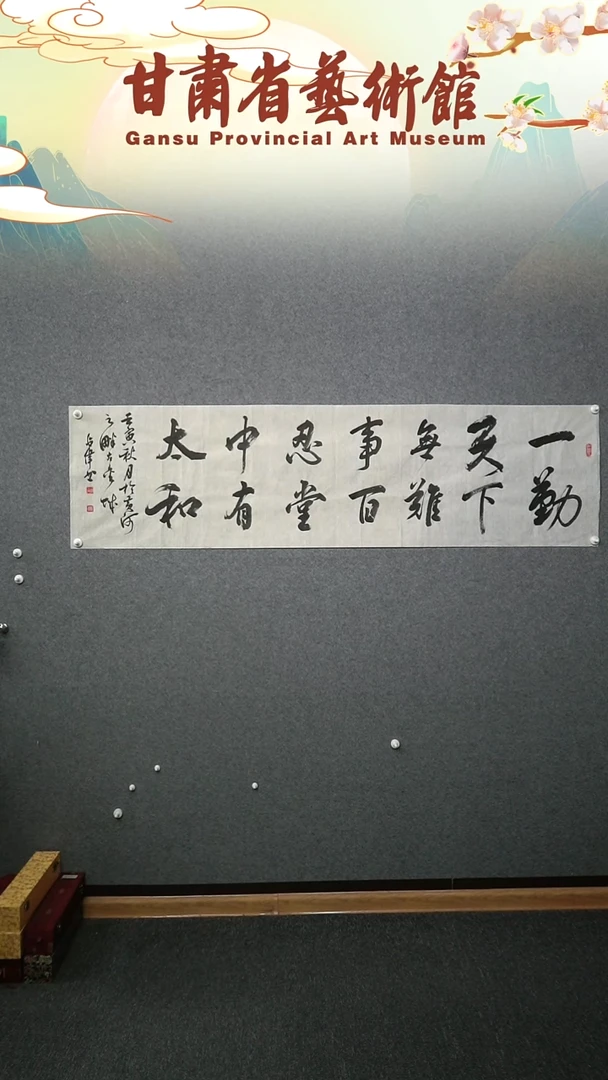 甘肅省藝術館
Gansu Provincial Art Museum
一勤
天下
無難
事百
忍堂
中有
太和
壬寅秋月於黄河
之畔古金城